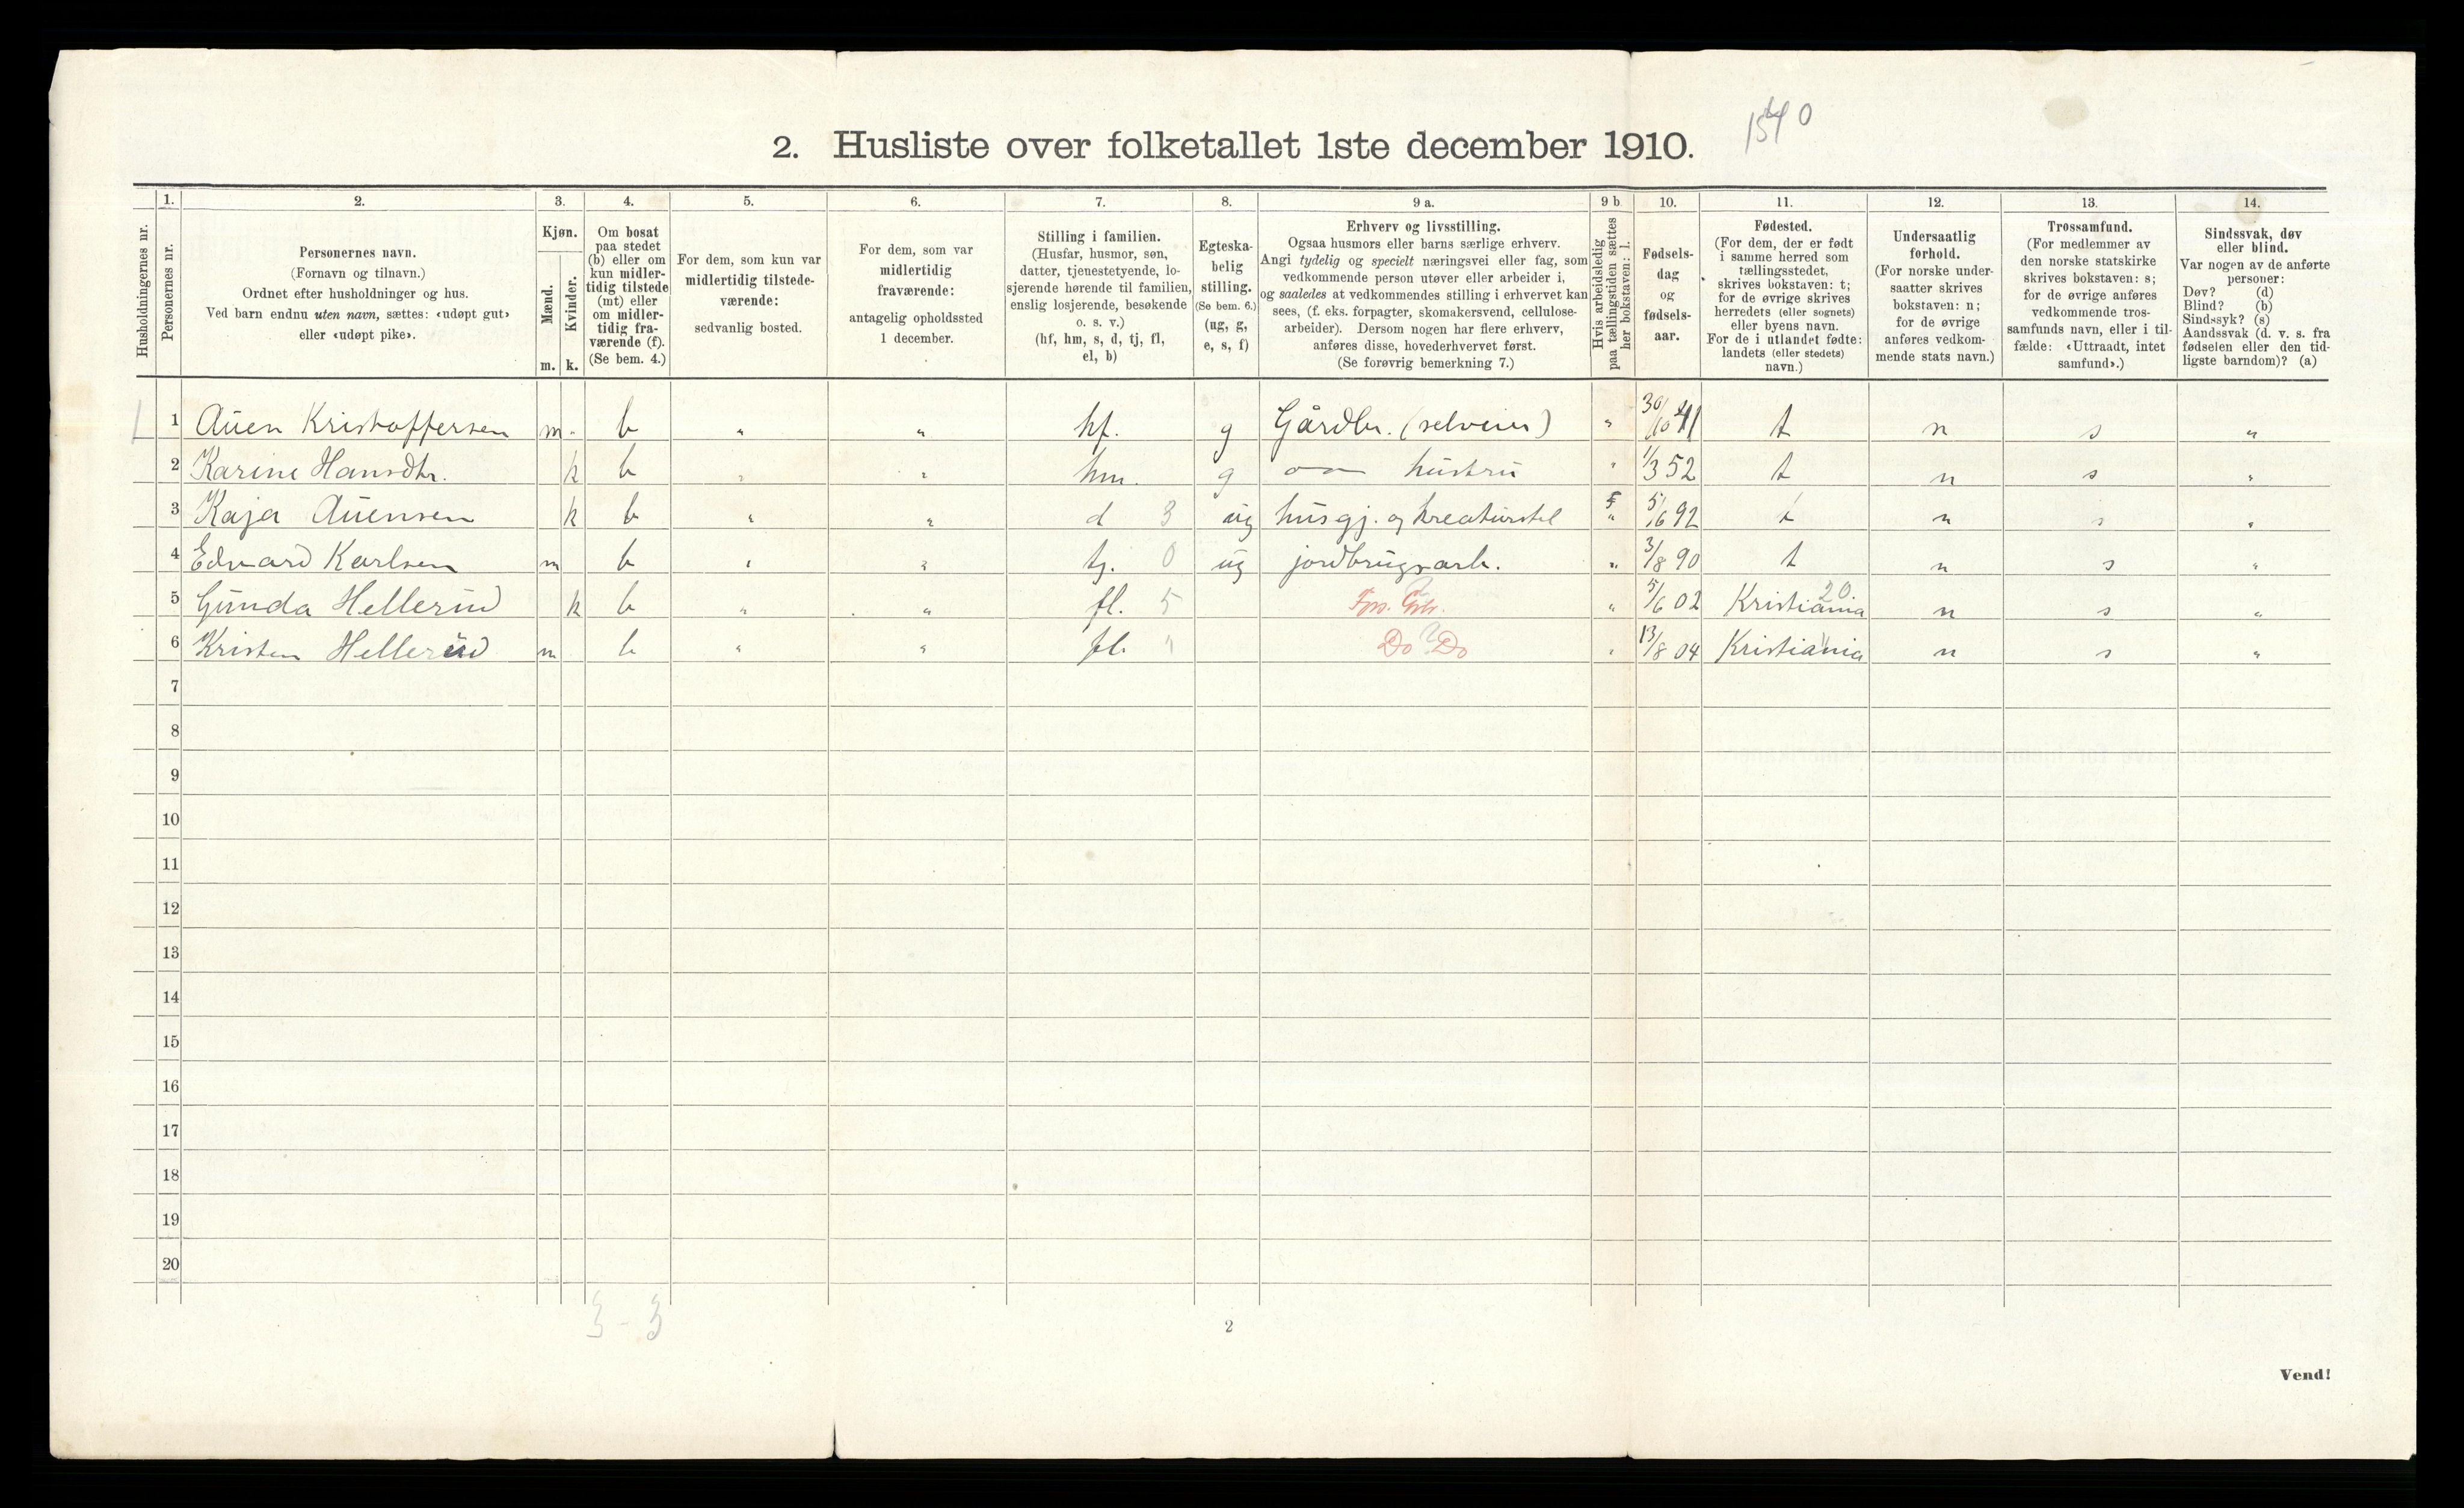 1540
2. Husliste over folketallet 1ste december 1910.
Husholdningernes nr.
1.
Personernes nr.
2.
Personernes navn.
(Fornavn og tilnavn.)
Ordnet efter husholdninger og hus.
Ved barn endnu uten navn, sættes: «udøpt gut»
eller «udøpt pike».
3.
Kjøn.
Mænd.
m.
Kvinder.
k.
4.
Om bosat
paa stedet
(b) eller om
kun midler-
tidig tilstede
(mt) eller
om midler-
tidig fra-
værende (f).
(Se bem. 4.)
5.
For dem, som kun var
midlertidig tilstede-
værende:
sedvanlig bosted.
6.
For dem, som var
midlertidig
fraværende:
antagelig opholdssted
1 december.
7.
Stilling i familien.
(Husfar, husmor, søn,
datter, tjenestetyende, lo-
sjerende hørende til familien,
enslig losjerende, besøkende
o. s. v.)
(hf, hm, s, d, tj, fl,
el, b)
8.
Egteska-
belig
stilling.
(Se bem. 6.)
(ug, g,
e, s, f)
9 a.
Erhverv og livsstilling.
Ogsaa husmors eller barns særlige erhverv.
Angi tydelig og specielt næringsvei eller fag, som
vedkommende person utøver eller arbeider i,
og saaledes at vedkommendes stilling i erhvervet kan
sees, (f. eks. forpagter, skomakersvend, cellulose-
arbeider). Dersom nogen har flere erhverv,
anføres disse, hovederhvervet først.
(Se forøvrig bemerkning 7.)
9 b
Hvis arbeidsledig
paa tællingstiden sættes
her bokstaven: l.
10.
Fødsels-
dag
og
fødsels-
aar.
11.
Fødested.
(For dem, der er født
i samme herred som
tællingsstedet,
skrives bokstaven: t;
for de øvrige skrives
herredets (eller sognets)
eller byens navn.
For de i utlandet fødte:
landets (eller stedets)
navn.)
12.
Undersaatlig
forhold.
(For norske under-
saatter skrives
bokstaven: n;
for de øvrige
anføres vedkom-
mende stats navn.)
13.
Trossamfund.
(For medlemmer av
den norske statskirke
skrives bokstaven: s;
for de øvrige anføres
vedkommende tros-
samfunds navn, eller i til-
fælde: «Uttraadt, intet
samfund».)
14.
Sindssvak, døv
eller blind.
Var nogen av de anførte
personer:
Døv? (d)
Blind? (b)
Sindssyk? (s)
Aandssvak (d. v. s. fra
fødselen eller den tid-
ligste barndom)? (a)
1 Auen Kristoffersen m - b " " hf. g Gårdbr. (selveier) " 30/10 41 t n s "
2 Karine Hansdtr. k b " " hm. g hustru " 1/3 52 t n s "
3 Kaja Auensen k b " " d 3 ug husgj. og kreaturstel " 5/6 92 t n s "
4 Edvard Karlsen m b " " tj. 0 ug jordbrugsarb. " 3/8 90 t n s "
5 Gunda Hellerud k b " " fl. 5 " 5/6 02 Kristiania 20. n s "
6 Kristen Hellerud m b " " fl. Do Do " 13/8 04 Kristiania n s "
7
8
9
10
11
12
13
14
15
16
17
18
19
20
3 - 3
2
Vend!